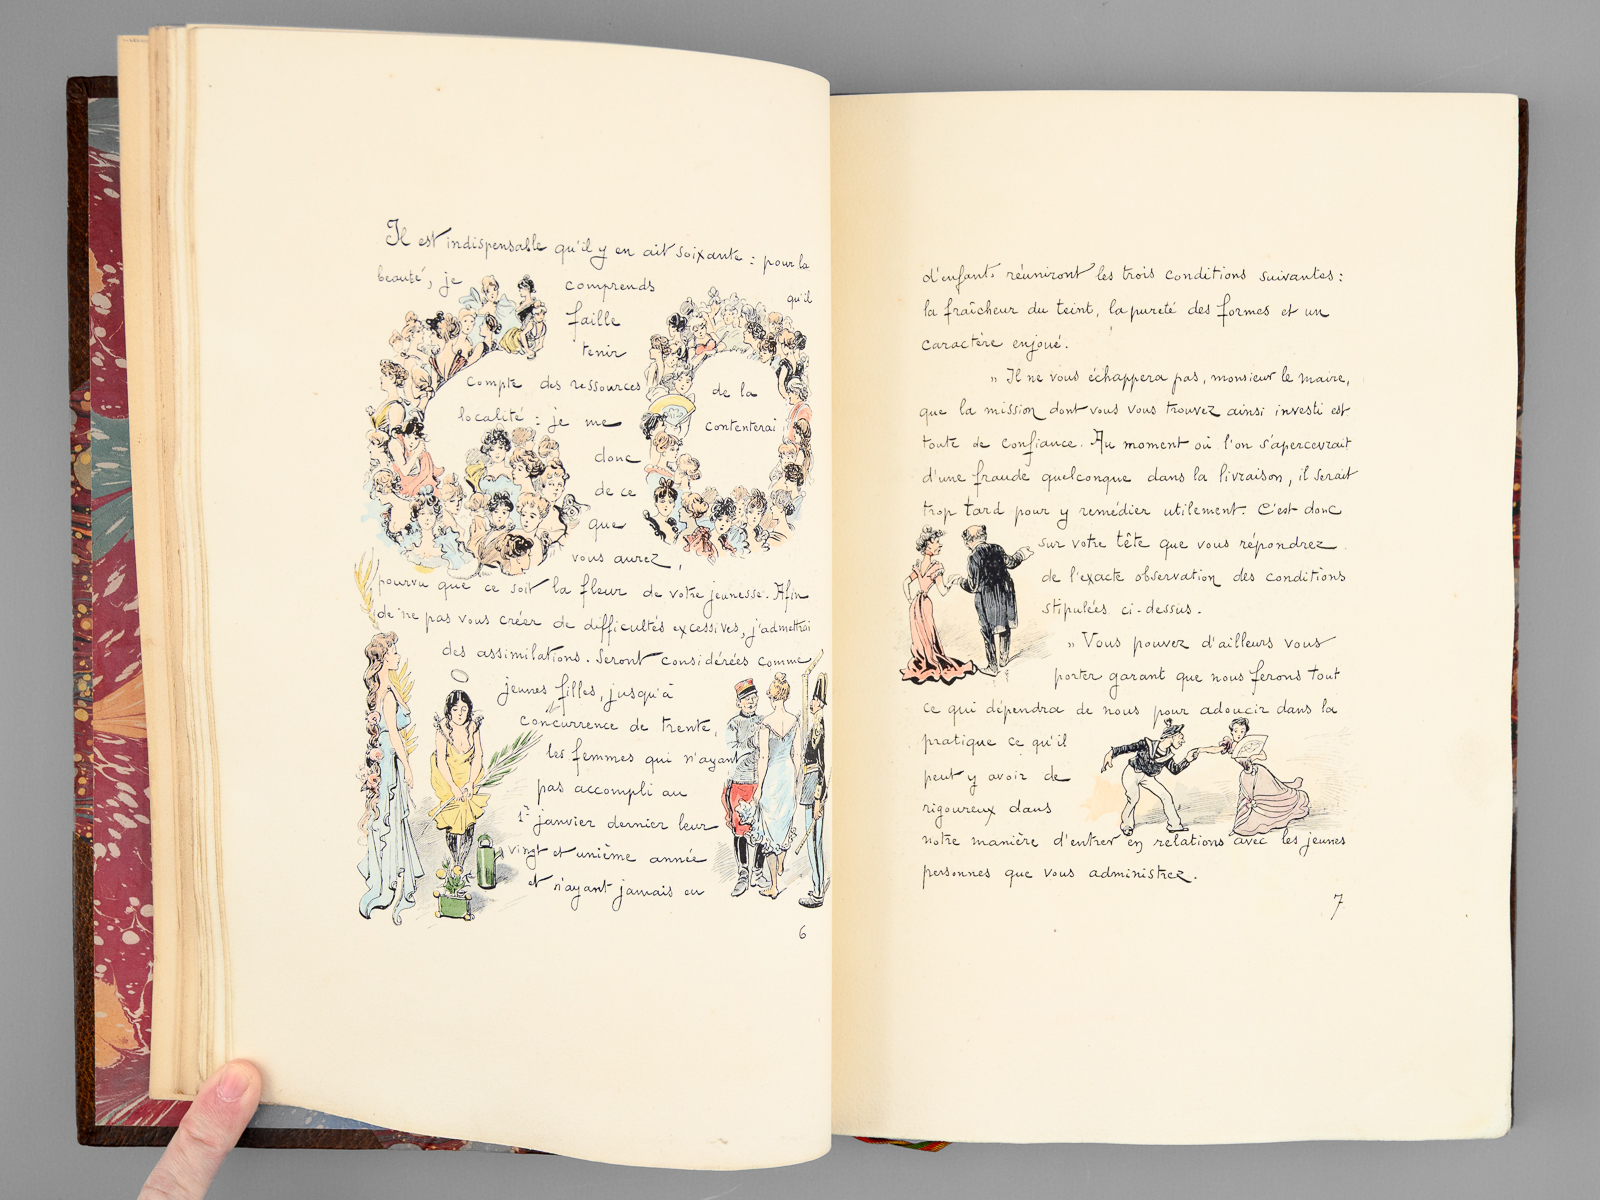 Il est indispensable qu'il y en ait soixante : pour la
beauté, je comprends qu'il
faille
tenir
compte des ressources de la
localité : je me contenterai
donc
de ce
que
vous aurez,
pourvu que ce soit la fleur de votre jeunesse. Afin
de ne pas vous créer de difficultés excessives, j'admettrai
des assimilations. Seront considérées comme
jeunes filles, jusqu'à
concurrence de trente,
les femmes qui n'ayant
pas accompli au
1er janvier dernier leur
vingt et unième année
et n'ayant jamais eu
6
d'enfants réuniront les trois conditions suivantes :
la fraîcheur du teint, la pureté des formes et un
caractère enjoué.
" Il ne vous échappera pas, monsieur le maire,
que la mission dont vous vous trouvez ainsi investi est
toute de confiance. Au moment où l'on s'apercevrait
d'une fraude quelconque dans la livraison, il serait
trop tard pour y remédier utilement. C'est donc
sur votre tête que vous répondrez
de l'exacte observation des conditions
stipulées ci-dessus.
" Vous pouvez d'ailleurs vous
porter garant que nous ferons tout
ce qui dépendra de nous pour adoucir dans la
pratique ce qu'il
peut y avoir de
rigoureux dans
notre manière d'entrer en relations avec les jeunes
personnes que vous administrez.
7